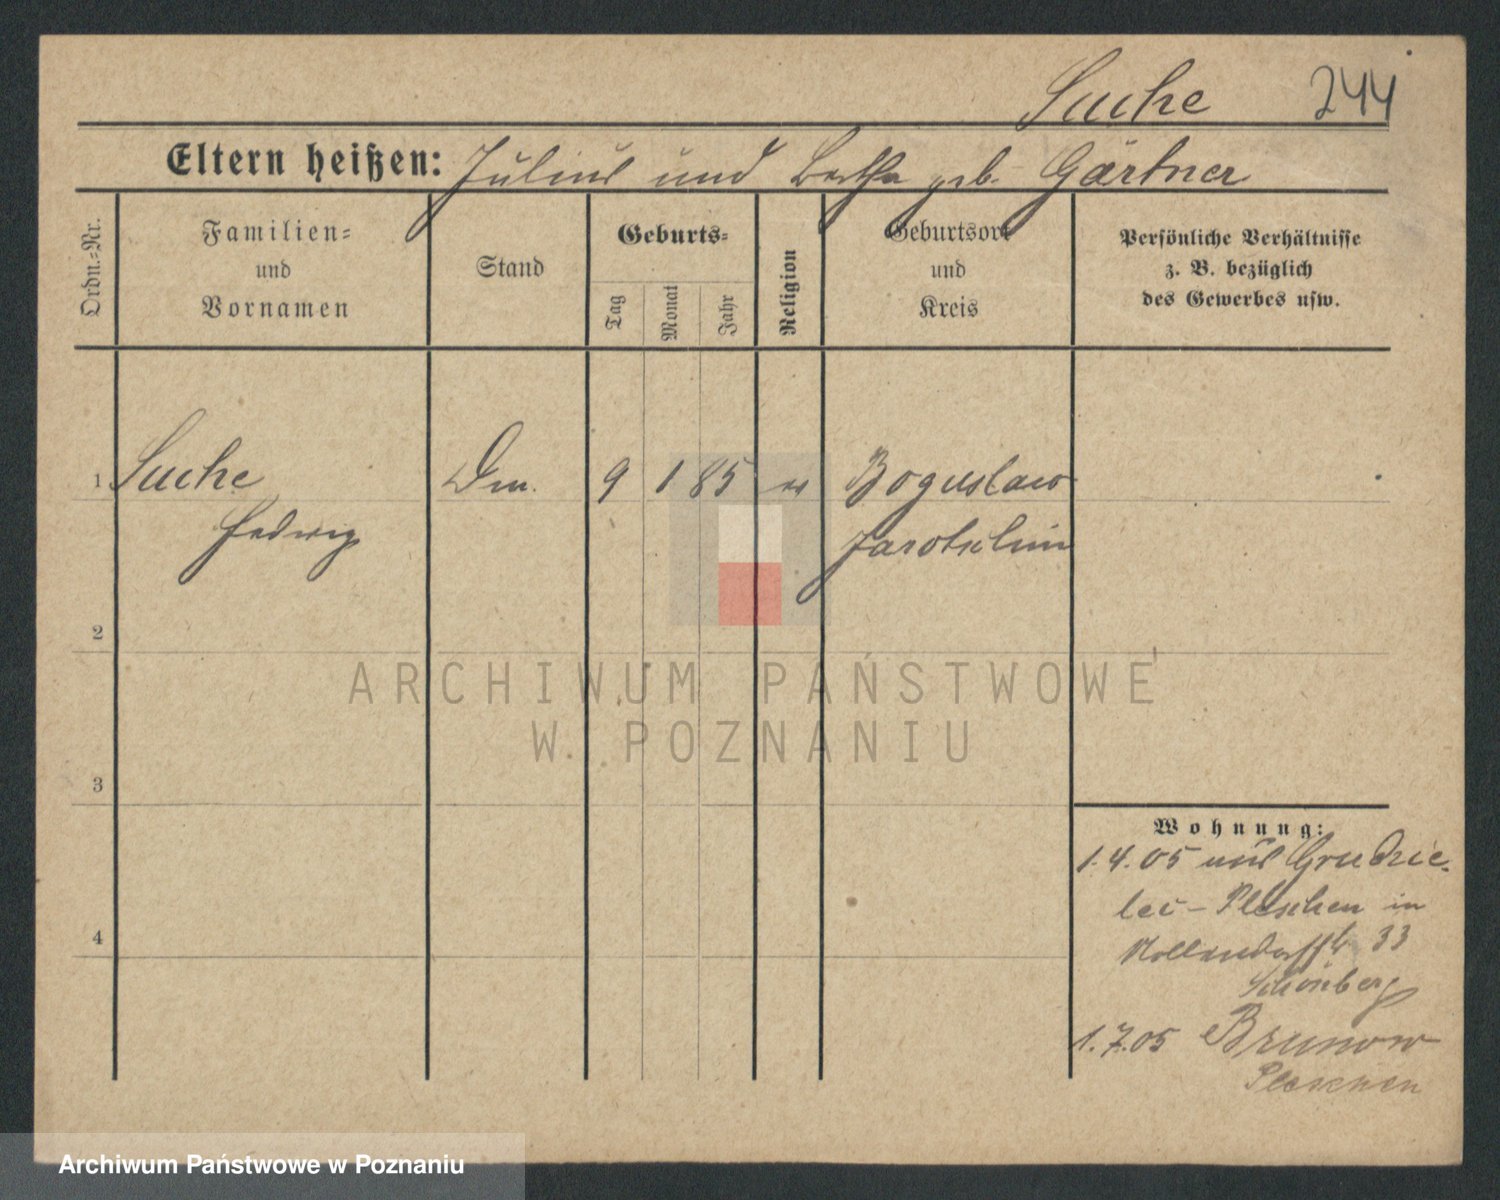 Suche 244
Eltern heißen: Julius und Bertha geb. Gärtner
Ordn.-Nr.
Familien-
und
Vornamen
Stand
Geburts-
Tag
Monat
Jahr
Religion
Geburtsort
und
Kreis
Persönliche Verhältnisse
z. B. bezüglich
des Gewerbes usw.
1 Suche 9 1 85 Boguslaw
Hedwig Jarotschin
2
3
4
Wohnung:
1.4.05 aus Grudzie-
lec - Pleschen in
33
Schönberg
1.7.05 Brunow
Pleschen
ARCHIWUM PAŃSTWOWE
W POZNANIU
Archiwum Państwowe w Poznaniu